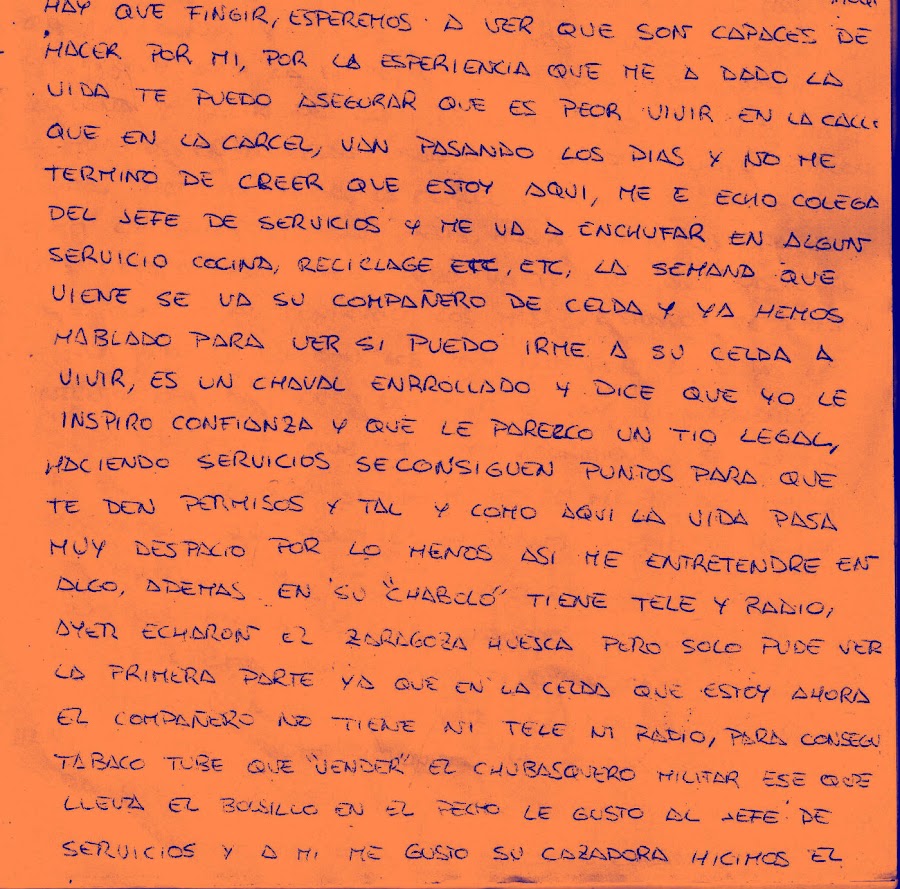 HAY QUE FINGIR, ESPEREMOS A VER QUE SON CAPACES DE
HACER POR MI, POR LA ESPERIENCIA QUE ME A DADO LA
VIDA TE PUEDO ASEGURAR QUE ES PEOR VIVIR EN LA CALLE
QUE EN LA CARCEL, VAN PASANDO LOS DIAS Y NO ME
TERMINO DE CREER QUE ESTOY AQUI, ME E ECHO COLEGA
DEL JEFE DE SERVICIOS Y ME VA A ENCHUFAR EN ALGUN
SERVICIO COCINA, RECICLAGE ETC, ETC, LA SEMANA QUE
VIENE SE VA SU COMPAÑERO DE CELDA Y YA HEMOS
HABLADO PARA VER SI PUEDO IRME A SU CELDA A
VIVIR, ES UN CHAVAL ENRROLLADO Y DICE QUE YO LE
INSPIRO CONFIANZA Y QUE LE PAREZCO UN TIO LEGAL,
HACIENDO SERVICIOS SE CONSIGUEN PUNTOS PARA QUE
TE DEN PERMISOS Y TAL Y COMO AQUI LA VIDA PASA
MUY DESPACIO POR LO MENOS ASI ME ENTRETENDRE EN
ALGO, ADEMAS EN SU "CHABOLO" TIENE TELE Y RADIO,
AYER ECHARON EL ZARAGOZA HUESCA PERO SOLO PUDE VER
LA PRIMERA PARTE YA QUE EN LA CELDA QUE ESTOY AHORA
EL COMPAÑERO NO TIENE NI TELE NI RADIO, PARA CONSEGU
TABACO TUBE QUE "VENDER" EL CHUBASQUERO MILITAR ESE QUE
LLEVA EL BOLSILLO EN EL PECHO LE GUSTO AL JEFE DE
SERVICIOS Y A MI ME GUSTO SU CAZADORA HICIMOS EL